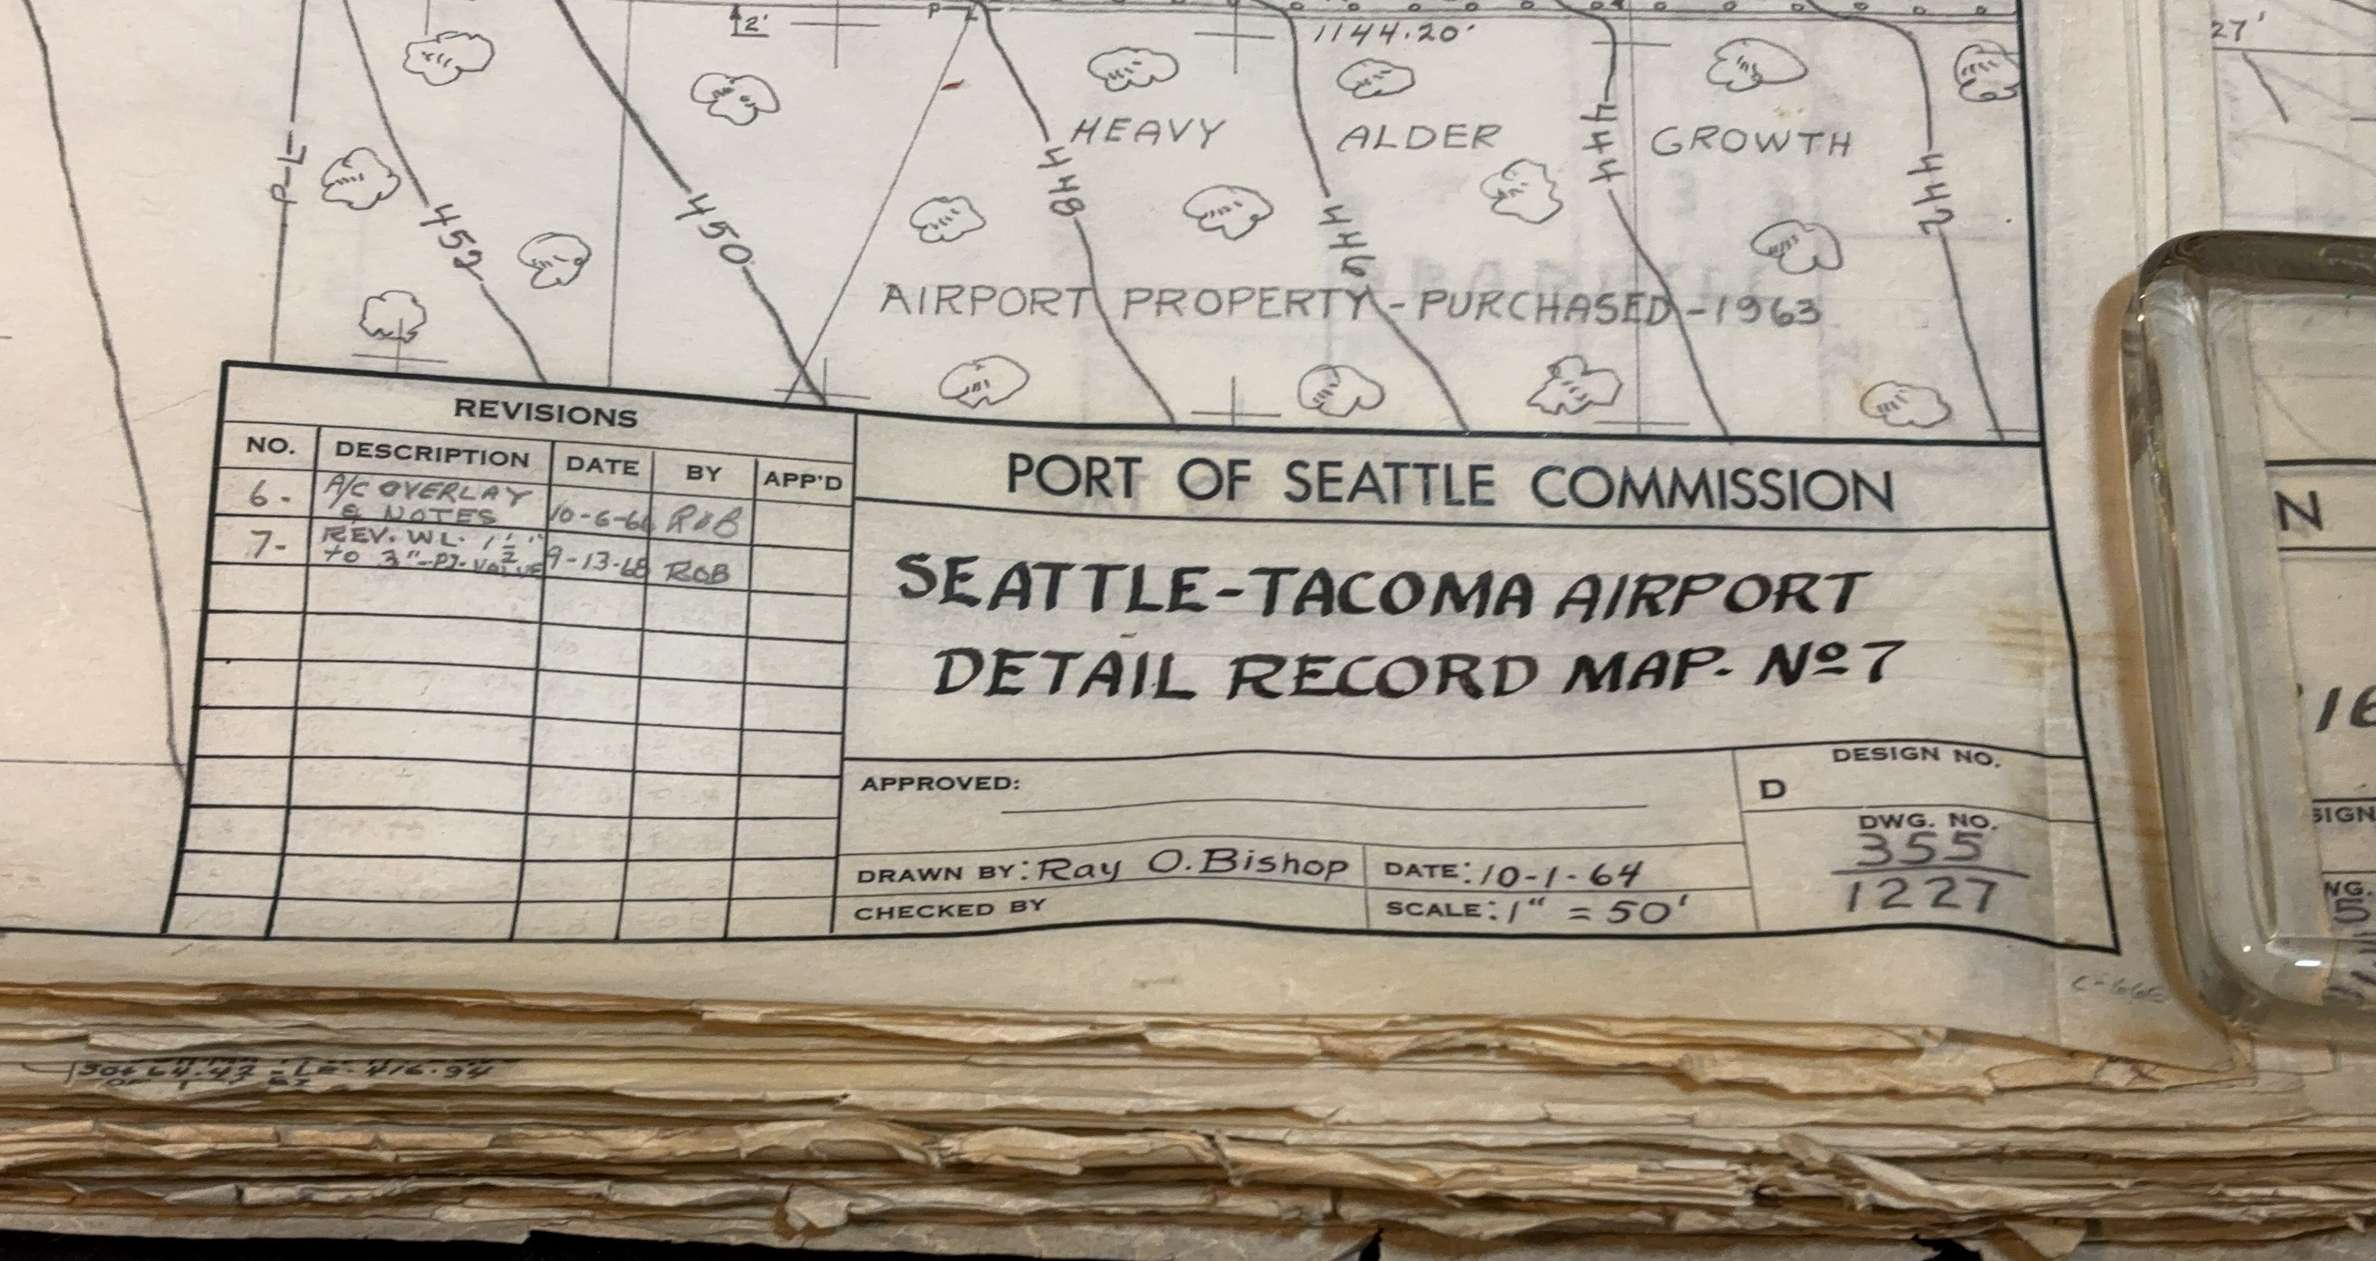 2'
P
1144.20'
27'
HEAVY ALDER GROWTH
P-L
452
450
448
446
444
442
AIRPORT PROPERTY - PURCHASED - 1963
REVISIONS
NO. DESCRIPTION DATE BY APP'D
6. A/C OVERLAY
& NOTES 10-6-66 ROB
7- REV. WL. 1½"
to 3" VALVE 9-13-68 ROB
PORT OF SEATTLE COMMISSION
SEATTLE-TACOMA AIRPORT
DETAIL RECORD MAP. Nº 7
APPROVED:
DRAWN BY: Ray O. Bishop
CHECKED BY
DATE: 10-1-64
SCALE: 1" = 50'
DESIGN NO.
D
DWG. NO.
355
1227
N
16
SIGN
NG.